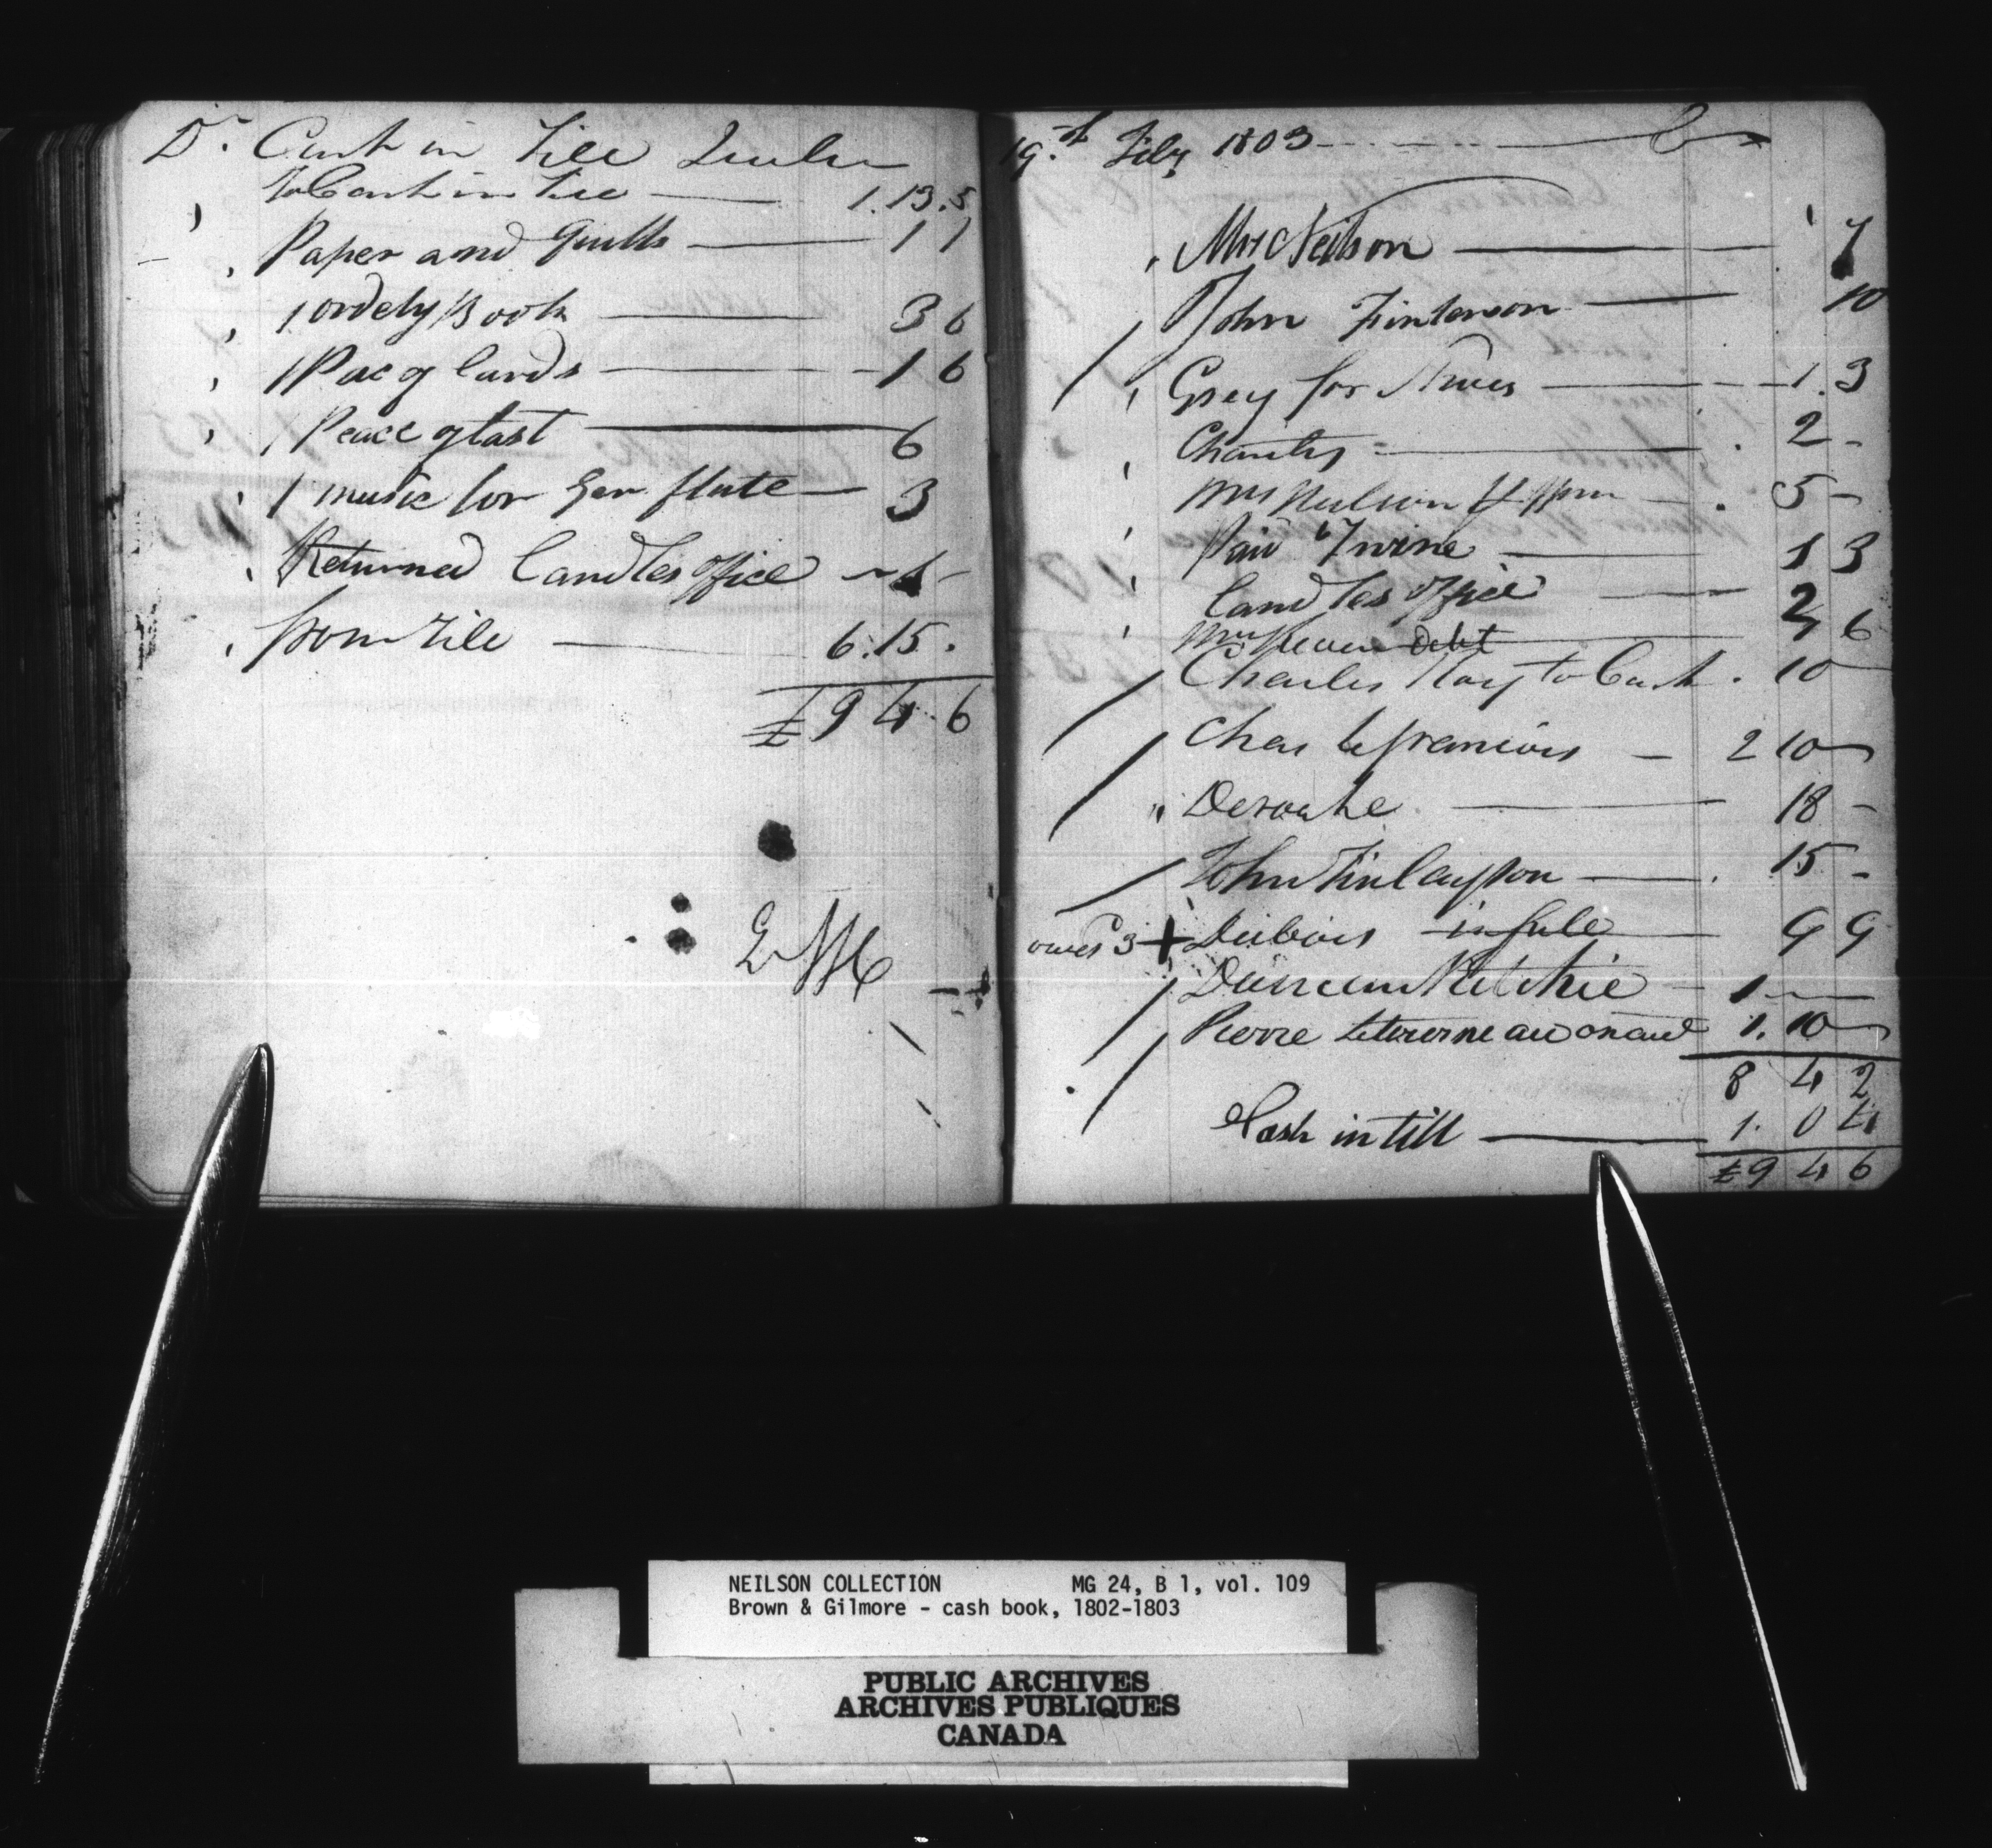 Dr. Cash in Till Quebec
To Cash in Till 1.13.5
Paper and Quills 1 1
1 ordely Book 3 6
1 Pac of Cards 1 6
1 Peace of tast 6
1 music for Ger flute 3
Returned Candles office
from Till 6.15.
£9 4 6
19th Feby 1803 Cr
Mrs Neilson 7
John Finlayson 10
Grey for 1.3
Charity 2 -
Mrs Neilson 5 -
Paid Twine 1 3
Candles office 2
debt 6
Charles Roy to Cash 10
Chas lefrancois 2 10
Deroche 18 -
John Finlayson 15 -
owes 3 + Dubois in full 9 9
Duncan Ritchie 1
Pierre Letourneau on act 1. 10
8 4 2
Cash in till 1. 0 4
£9 4 6
NEILSON COLLECTION MG 24, B 1, vol. 109
Brown & Gilmore - cash book, 1802-1803
PUBLIC ARCHIVES
ARCHIVES PUBLIQUES
CANADA